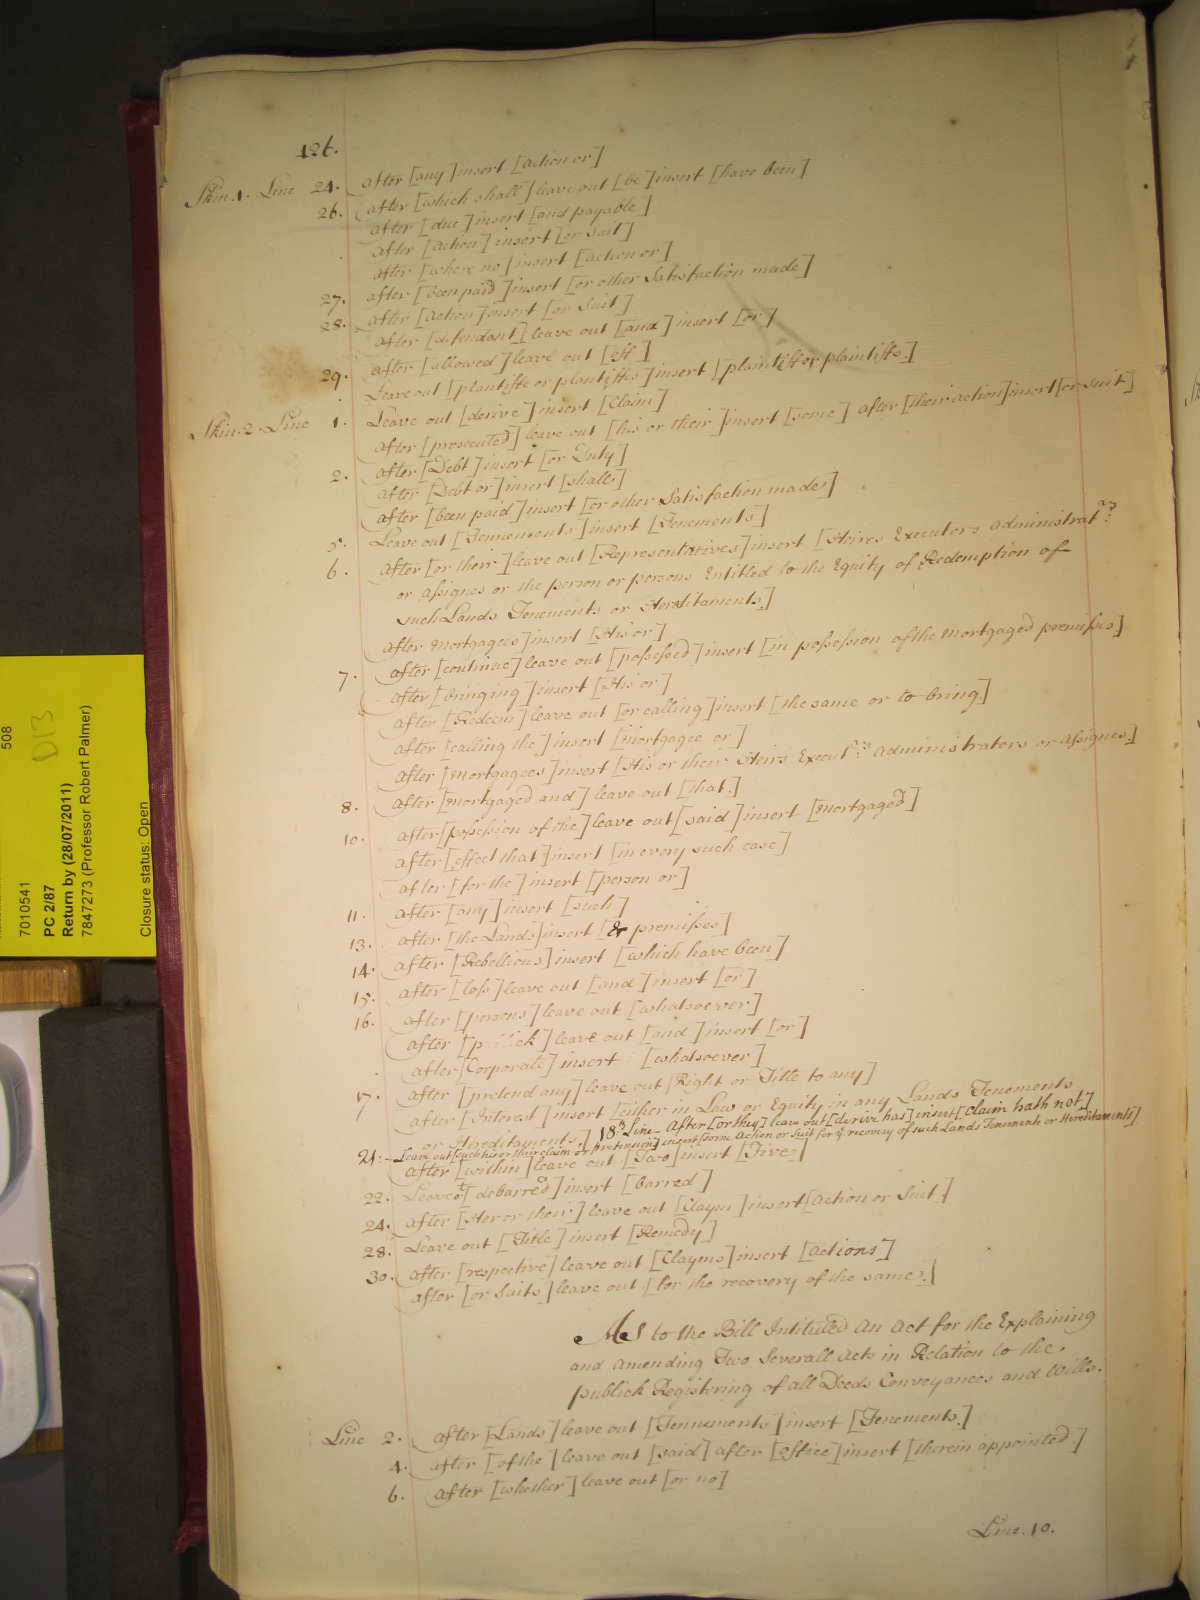 426.
Skin. 1. Line 24. after [any] insert [action or]
26. after [which shall] leave out [be] insert [have been]
after [due] insert [and payable]
after [action] insert [or Suit]
after [where no] insert [action or]
27. after [been paid] insert [or other Satisfaction made]
28. after [Action] insert [or Suit]
after [defendant] leave out [and] insert [or]
29. after [allowed] leave out [off]
Leave out [plantiffe or plantiffes] insert [plaintiff or plaintiffs.]
Skin. 2. Line 1. Leave out [derive] insert [Claim]
after [prosecuted] leave out [his or their] insert [some] after [their action] insert [or suit]
2. after [Debt] insert [or Duty]
after [Debt or] insert [shall]
after [been paid] insert [or other Satisfaction made]
5. Leave out [Tennements] insert [Tenements]
6. after [or their] leave out [Representatives] insert [Heires Executors administrat.rs
or assignes or the person or persons Entitled to the Equity of Redemption of
such Lands Tenements or Hereditaments.]
after Mortgagees] insert [His or]
7. after [continue] leave out [possessed] insert [in possession of the mortgaged premisses]
after [bringing] insert [His or]
after [Redeem] leave out [or calling] insert [the same or to bring.]
after [calling the] insert [mortgagee or]
after [Mortgagees] insert [His or their Heirs Execut.rs administrators or assignes.]
8. after [mortgaged and] leave out [that.]
10. after [possession of the] leave out [said] insert [Mortgaged]
after [effect that] insert [in every such case]
after [for the] insert [person or]
11. after [any] insert [such]
13. after [the Lands] insert [& premisses]
14. after [Rebellious] insert [which have been]
15. after [loss] leave out [and] insert [or]
16. after [persons] leave out [whatsoever]
after [publick] leave out [and] insert [or]
after [Corporate] insert [whatsoever]
17. after [pretend any] leave out [Right or Title to any]
after [Interest] insert [either in Law or Equity in any Lands Tenements
or Hereditaments.] 18th Line - After [or they] leave out [derive has] insert [claim hath not]
21. - Leave out [such his or their claim or pretension] insert [some Action or Suit for ye recovery of such Lands Tenements or Hereditaments]
after [within] leave out [Two] insert [Five]
22. Leave ot [debarred] insert [barred]
24. after [Her or their] leave out [Claym] insert [Action or Suit]
28. Leave out [Title] insert [Remedy]
30. after [respective] leave out [Clayms] insert [Actions]
after [or Suits] leave out [for the recovery of the same.]
As to the Bill Intituled An Act for the Explaining
and amending Two Severall Acts in Relation to the
publick Registring of all Deeds Conveyances and Wills.
Line 2. after [Lands] leave out [Tennements] insert [Tenements.]
4. after [of the] leave out [said] after [office] insert [therein appointed.]
6. after [whether] leave out [or no]
Line. 10.
508
D13
7010541
PC 2/87
Return by (28/07/2011)
7847273 (Professor Robert Palmer)
Closure status: Open